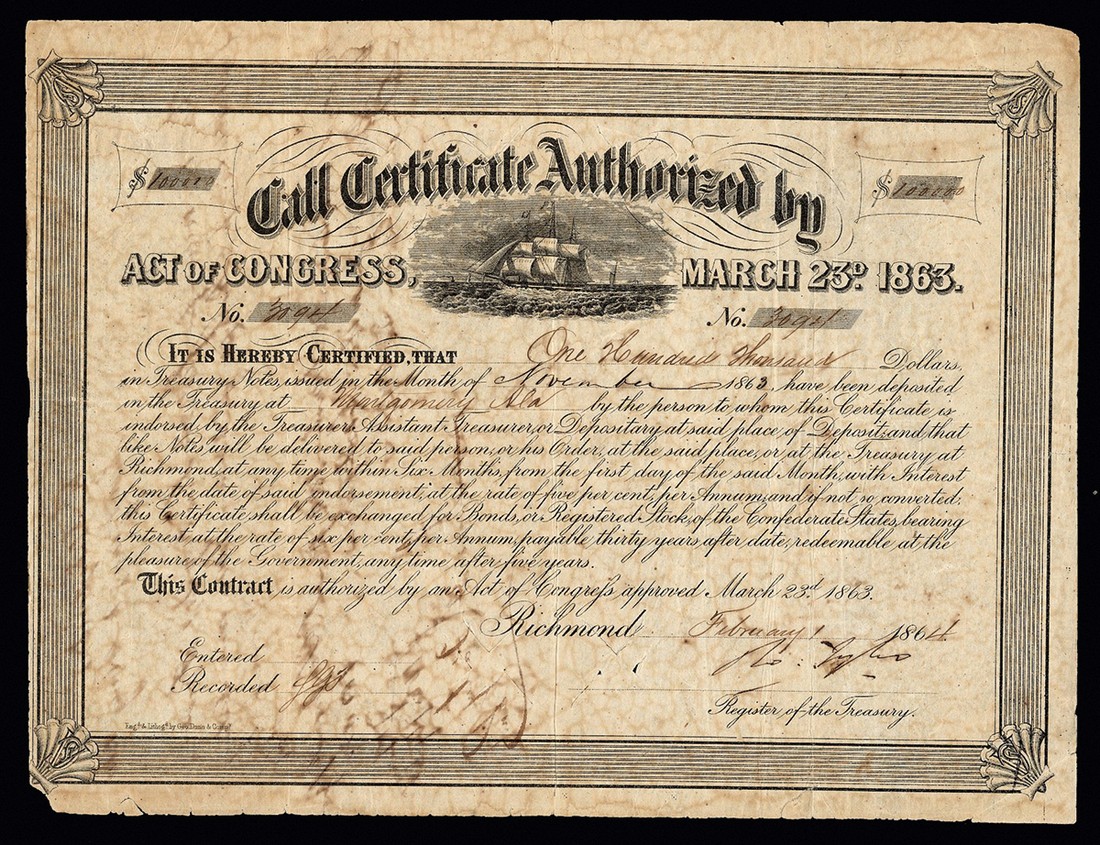 Call Certificate Authorized by
$ 100000
$ 100000
ACT OF CONGRESS, MARCH 23D. 1863.
No. 3094
No. 3094
IT IS HEREBY CERTIFIED, THAT One Hundred Thousand Dollars,
in Treasury Notes, issued in the Month of November 1863, have been deposited
in the Treasury at Montgomery Ala by the person to whom this Certificate is
indorsed, by the Treasurer, Assistant Treasurer, or Depositary at said place of Deposit; and that
like Notes will be delivered to said person, or his Order, at the said place, or at the Treasury at
Richmond, at any time within Six Months, from the first day of the said Month, with Interest
from the date of said indorsement, at the rate of five per cent, per Annum; and if not so converted,
this Certificate shall be exchanged for Bonds, or Registered Stock, of the Confederate States, bearing
Interest at the rate of six per cent, per Annum, payable thirty years, after date, redeemable at the
pleasure of the Government, any time after five years.
This Contract is authorized by an Act of Congress approved March 23rd 1863.
Richmond February 1 1864
Entered
Ro: Tyler
Recorded
Register of the Treasury.
Engd. & Lithogd. by Geo. Dunn & Compy.